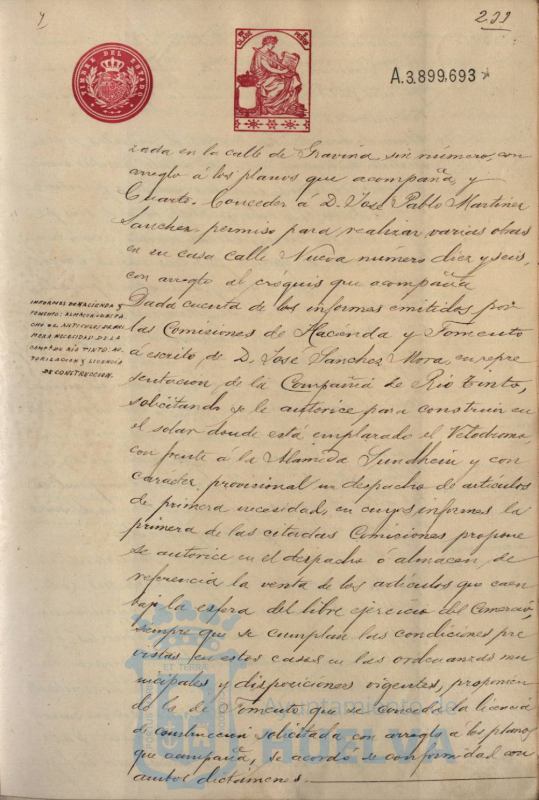 299
TIMBRE DEL ESTADO
A.3.899.693
zada en la calle de Gravina sin número, con
arreglo á los planos que acompaña, y
Cuarto. Conceder á D. José Pablo Martinez
Sanchez permiso para realizar varias obras
en su casa calle Nueva número diez y seis,
con arreglo al cróquis que acompaña
INFORMES DE HACIENDA Y
FOMENTO: ALMACEN
DE ARTICULOS DE PRI
MERA NECESIDAD DE LA
COMPAÑIA RIO TINTO: AU
TORIZACION Y LICENCIA
DE CONSTRUCCION.
Dada cuenta de los informes emitidos por
las Comisiones de Hacienda y Fomento
á escrito de D. José Sanchez Mora, en repre
sentacion de la Compañia de Rio Tinto,
solicitando se le autorice para construir en
el solar donde está emplazado el Velodromo,
con frente á la Alameda Sundheim y con
carácter provisional un despacho de artículos
de primera necesidad, en cuyos informes la
primera de las citadas Comisiones propone
se autorice en el despacho ó almacen de
referencia la venta de los artículos que caen
bajo la esfera del libre ejercicio del Comercio,
siempre que se cumplan las condiciones pre
vistas en estos casos en las ordenanzas mu
nicipales y disposiciones vigentes, proponien
do la de Fomento que se conceda la licencia
de construccion solicitada con arreglo á los planos
que acompaña, se acordó de conformidad con
ambos dictámenes.
Ayuntamiento de
HUELVA